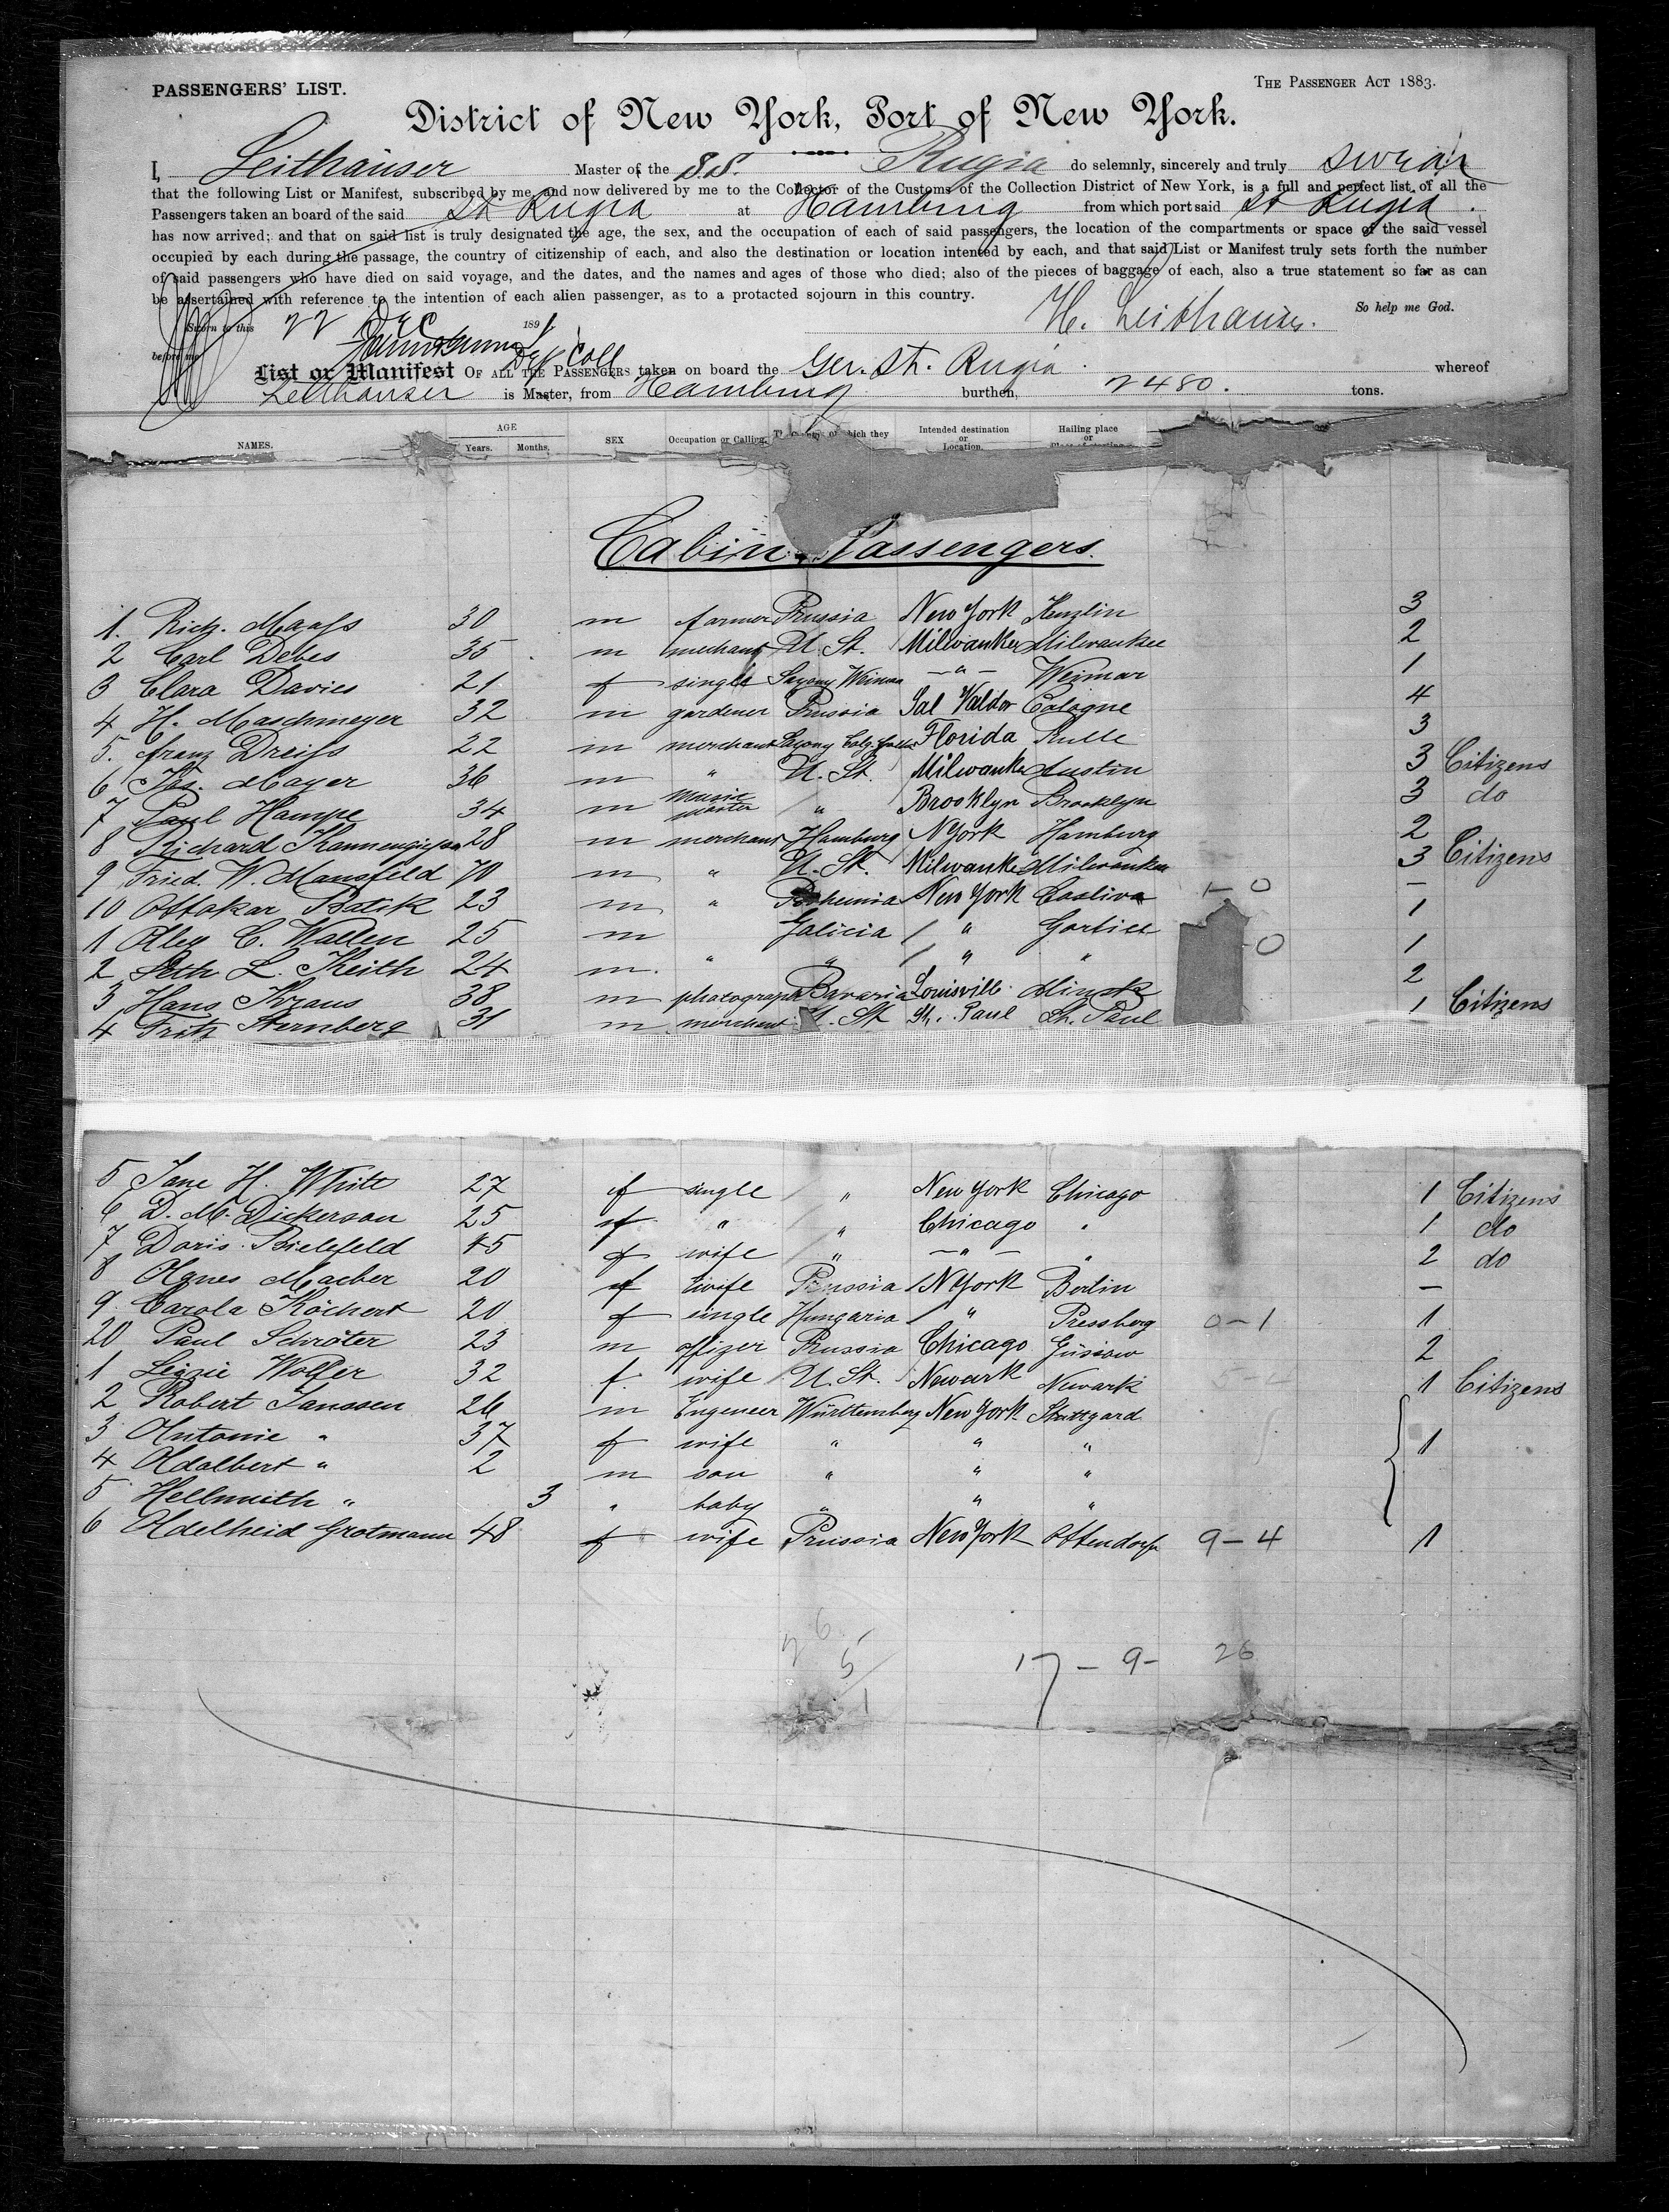 PASSENGERS' LIST.
THE PASSENGER ACT 1883.
District of New York, Port of New York.
I, Leithäuser Master of the SS. Rugia do selemnly, sincerely and truly swear
that the following List or Manifest, subscribed by me, and now delivered by me to the Collector of the Customs of the Collection District of New York, is a full and perfect list of all the
Passengers taken an board of the said St Rugia at Hamburg from which port said St Rugia.
has now arrived; and that on said list is truly designated the age, the sex, and the occupation of each of said passengers, the location of the compartments or space of the said vessel
occupied by each during the passage, the country of citizenship of each, and also the destination or location intented by each, and that said List or Manifest truly sets forth the number
of said passengers who have died on said voyage, and the dates, and the names and ages of those who died; also of the pieces of baggage of each, also a true statement so far as can
be assertained with reference to the intention of each alien passenger, as to a protacted sojourn in this country.
So help me God.
Sworn to this 22 Dec 1891
H. Leithäuser.
before me
Dep Coll
List or Manifest OF ALL THE PASSENGERS taken on board the Ger. St. Rugia. whereof
Leithäuser is Master, from Hamburg burthen, 2480. tons.
NAMES. AGE Years. Months. SEX Occupation or Calling. which they Intended destination or Location. Hailing place or
Cabin Passengers.
1. Rich. Maass 30 m farmer Prussia New York Kenzlin 3
2 Carl Debes 35 m mechant U. St. Milwaukee Milwaukee 2
3 Clara Davies 21 f single Saxony Weimar -"- Weimar 1
4 H. Maschmeyer 32 m gardener Prussia Sal Valdor Cologne 4
5. Franz Dreiss 22 m merchant Saxony Florida Rulle 3
6 Jos. Mayer 36 m " U. St. Milwauke Austin 3 Citizens
7 Paul Hampe 34 m Music master " Brooklyn Brooklyn 3 do
8 Richard Kannengiesser 28 m merchant Hamburg N York Hamburg 2
9 Fried. W. Mansfeld 70 m " U. St. Milwauke Milwaukee 3 Citizens
10 Ottokar Batik 23 m " Bohemia New York 1-0 -
1 Alex C. Wallen 25 m Galicia " Gorlice 1
2 Seth L. Keith 24 m. " " " " 0 1
3 Hans Kraus 38 m photograph Bavaria Louisville Minsk 2
4 Fritz Sternberg 31 m merchant U. St. St. Paul St. Paul 1 Citizens
5 Jane H. White 27 f single " New York Chicago 1 Citizens
6 D. M. Dickerson 25 f " " Chicago " 1 do
7 Doris Bielefeld 45 f wife " -"- " 2 do
8 Agnes Macher 20 f wife Prussia N York Berlin -
9 Carola Köchert 20 f single Hungaria " Pressberg 0-1 1
20 Paul Schröter 23 m offizer Prussia Chicago Güstow 2
1 Lizzie Wolfer 32 f. wife U. St. Newark Newark 1 Citizens
2 Robert Janssen 26 m Engeneer Württemberg New York Stuttgard
3 Antonie " 37 f wife " " " 1
4 Adalbert " 2 m son " " "
5 Hellmuth " 3 " baby " " "
6 Adelheid Grotmann 48 f wife Prussia New York Ottendorf 9-4 1
26
5
1
17-9- 26